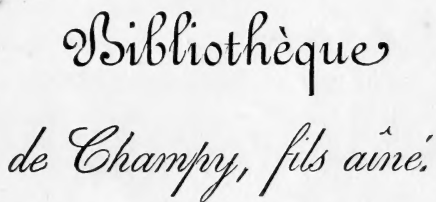 Bibliothèque
de Champy, fils aîné.